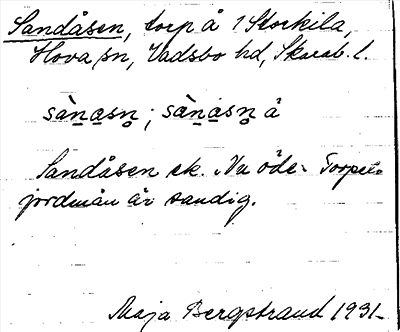 Sandåsen, torp å 1 Storkila,
Hova sn, Vadsbo hd, Skarab. l.
sàn̠a̠sn̥ ; sàn̠a̠sn̥ å
Sandåsen ek. Nu öde. Torpets
jordmån är sandig.
Maja Bergstrand 1931